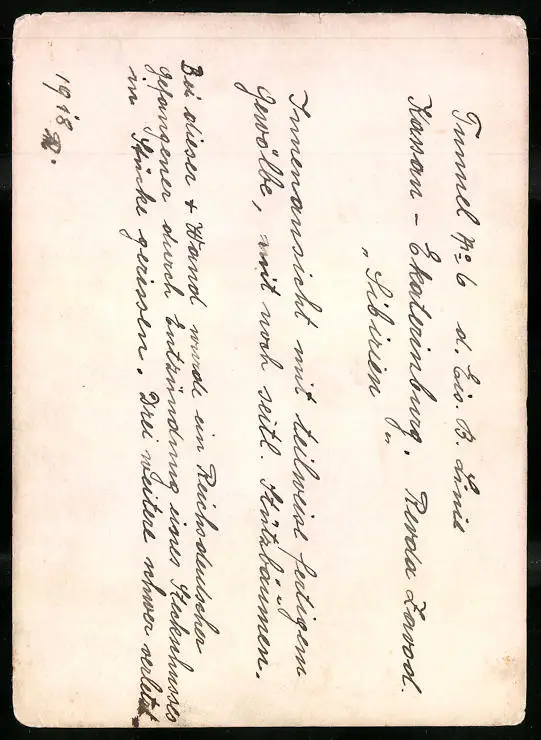 Tunnel No 6 d. Eis. B. Linie
Kasan - Ekaterinburg. Revda Zavod.
"Sibirien"
Innenansicht mit teilweise fertigem
Gewölbe, mit noch seitl. Stützbäumen.
Bei dieser + Wand wurde ein Reichsdeutscher
gefangener durch Entzündung eines
in Stücke gerissen. Drei weitere schwer verletzt
1918 R.